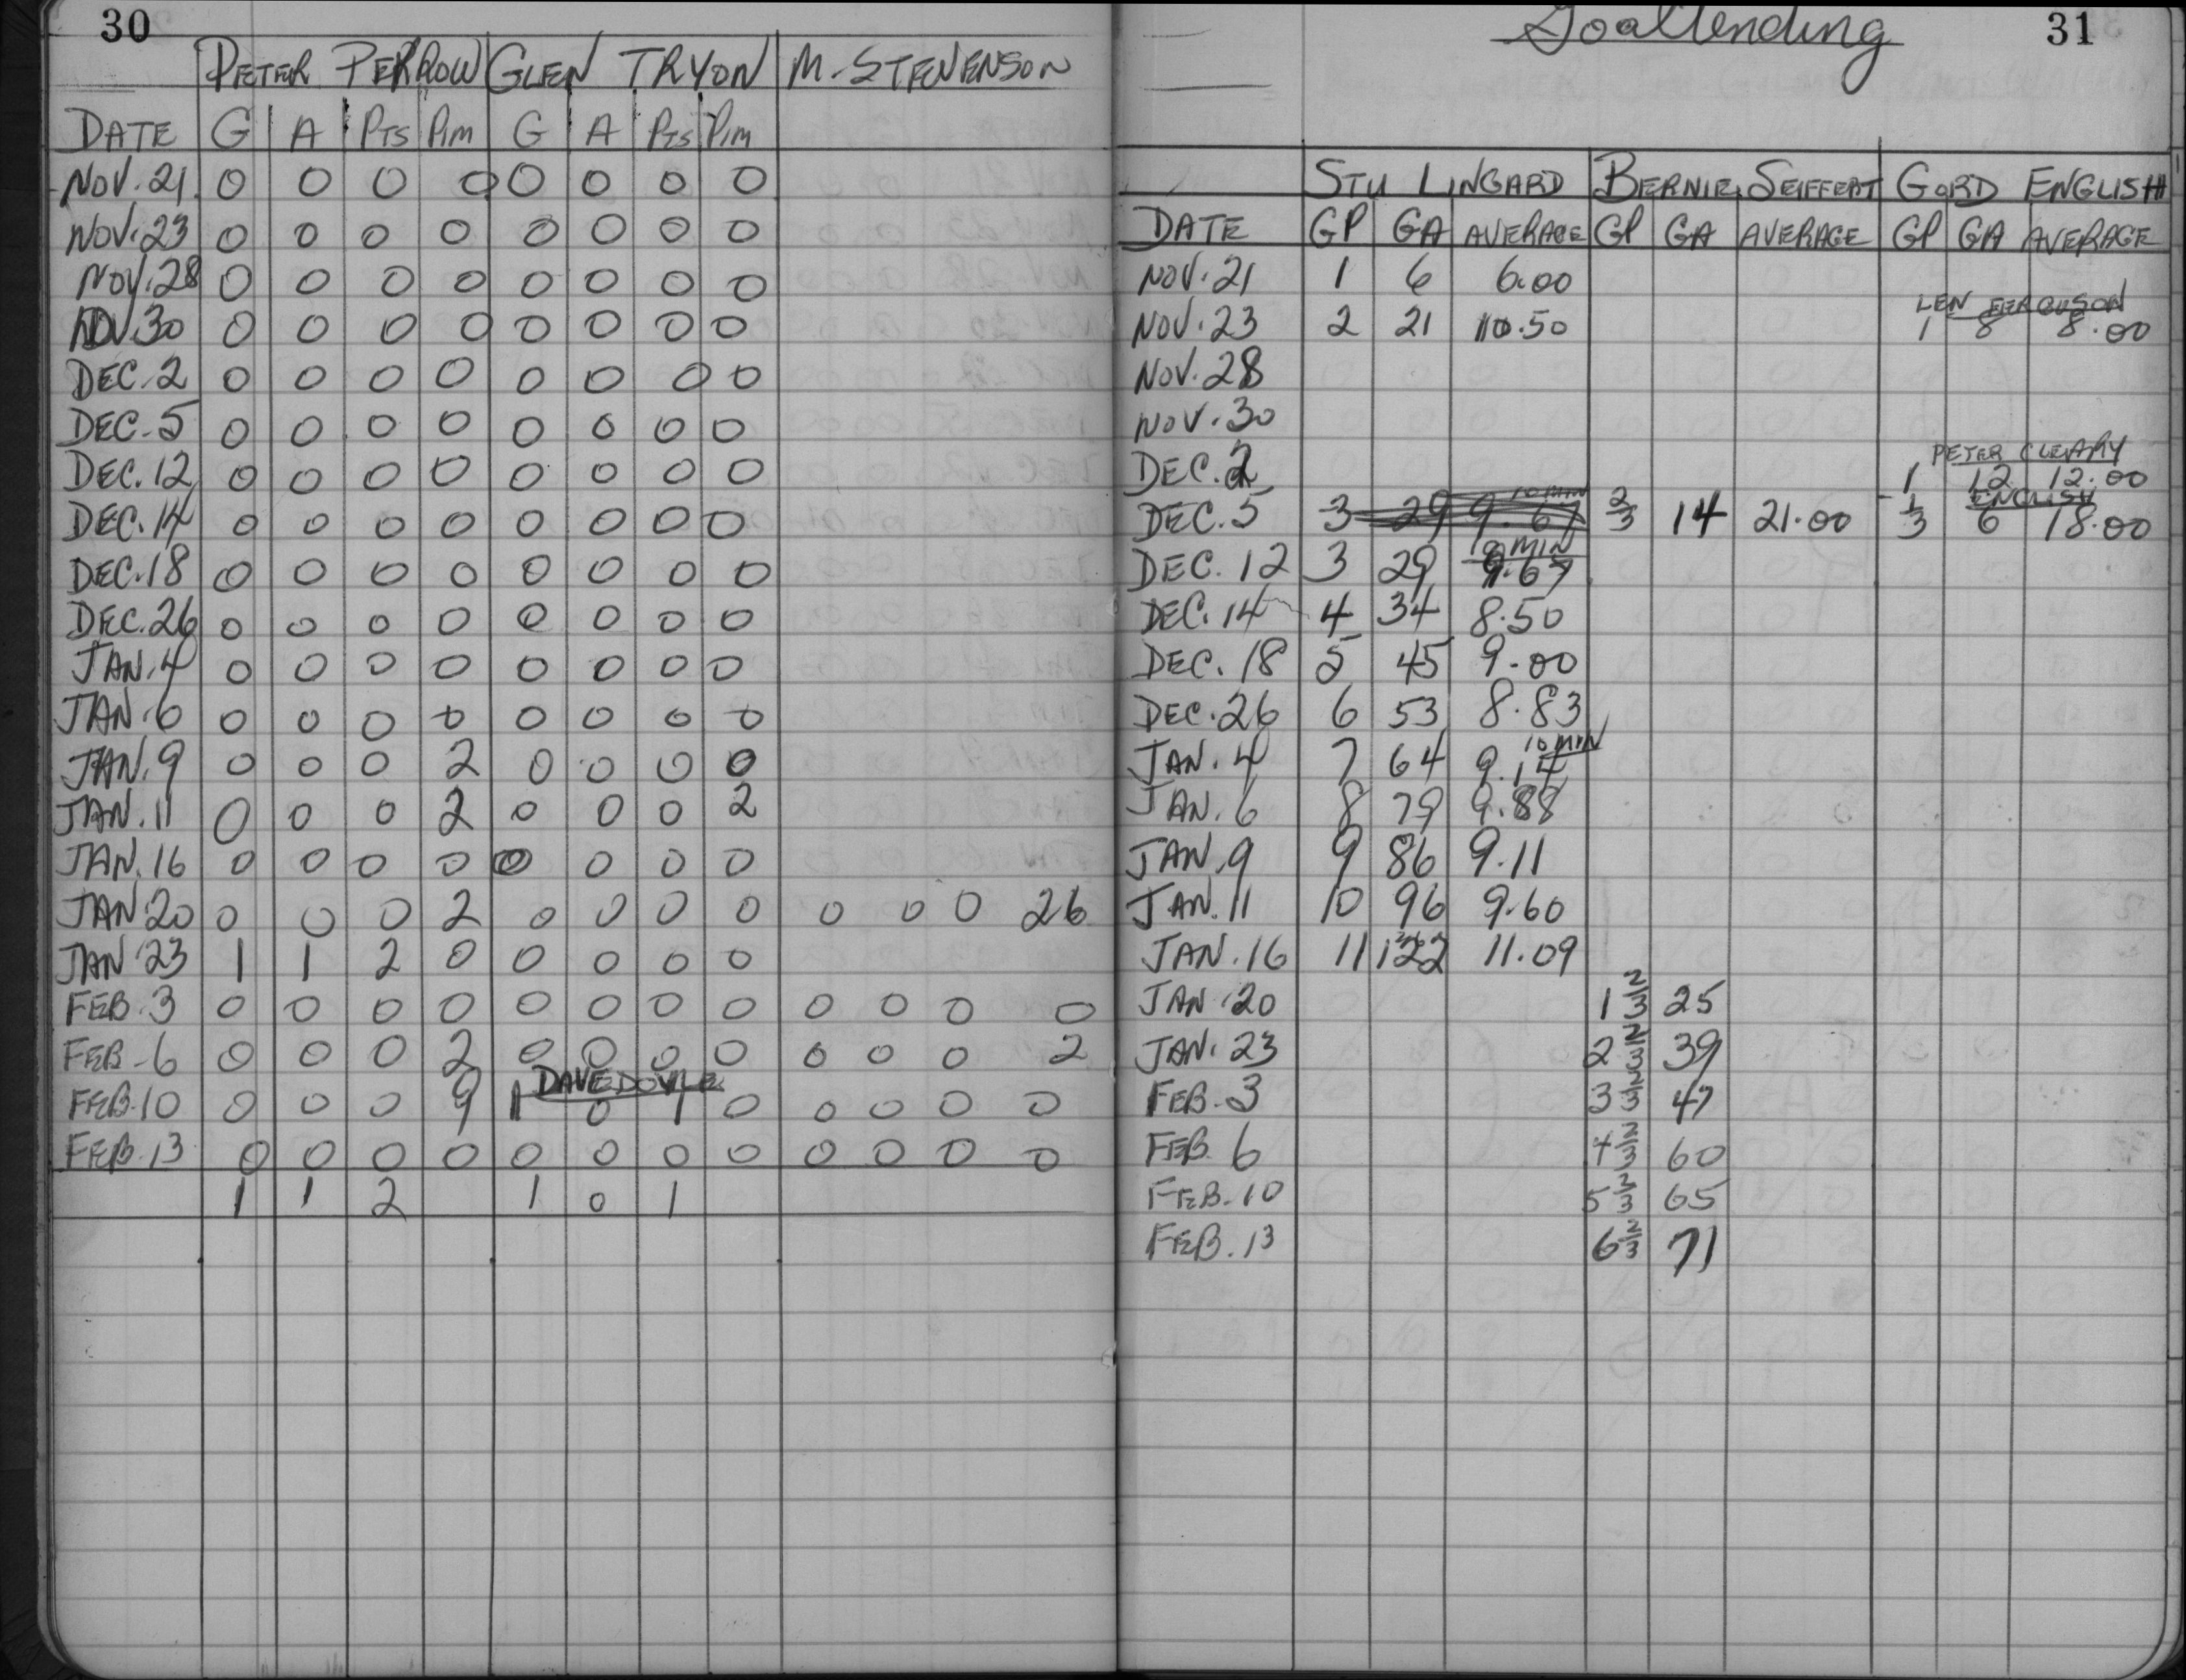 30
PETER PERROW GLEN TRYON M. STEVENSON
DATE G A PTS PIM G A PTS PIM
NOV. 21 0 0 0 0 0 0 0 0
NOV. 23 0 0 0 0 0 0 0 0
NOV. 28 0 0 0 0 0 0 0 0
NOV 30 0 0 0 0 0 0 0 0
DEC. 2 0 0 0 0 0 0 0 0
DEC. 5 0 0 0 0 0 0 0 0
DEC. 12 0 0 0 0 0 0 0 0
DEC. 14 0 0 0 0 0 0 0 0
DEC. 18 0 0 0 0 0 0 0 0
DEC. 26 0 0 0 0 0 0 0 0
JAN. 4 0 0 0 0 0 0 0 0
JAN. 6 0 0 0 0 0 0 0 0
JAN. 9 0 0 0 2 0 0 0 0
JAN. 11 0 0 0 2 0 0 0 2
JAN. 16 0 0 0 0 0 0 0 0
JAN 20 0 0 0 2 0 0 0 0 0 0 0 26
JAN 23 1 1 2 0 0 0 0 0
FEB. 3 0 0 0 0 0 0 0 0 0 0 0 0
FEB - 6 0 0 0 2 0 0 0 0 0 0 0 2
DAVE DOYLE
FEB. 10 0 0 0 9 1 0 1 0 0 0 0 0
FEB. 13 0 0 0 0 0 0 0 0 0 0 0 0
1 1 2 1 0 1
Goaltending 31
STU LINGARD BERNIE SEIFFERT GORD ENGLISH
DATE GP GA AVERAGE GP GA AVERAGE GP GA AVERAGE
NOV. 21 1 6 6.00
LEN FERGUSON
NOV. 23 2 21 10.50 1 8 8.00
NOV. 28
NOV. 30
PETER CLEARY
DEC. 2 1 12 12.00
10 MIN ENGLISH
DEC. 5 3 29 9.67 2/3 14 21.00 1/3 6 18.00
10 MIN
DEC. 12 3 29 9.67
DEC. 14 4 34 8.50
DEC. 18 5 45 9.00
DEC. 26 6 53 8.83
10 MIN
JAN. 4 7 64 9.14
JAN. 6 8 79 9.88
JAN. 9 9 86 9.11
JAN. 11 10 96 9.60
JAN. 16 11 122 11.09
JAN. 20 1 2/3 25
JAN. 23 2 2/3 39
FEB. 3 3 2/3 47
FEB. 6 4 2/3 60
FEB. 10 5 2/3 65
FEB. 13 6 2/3 71